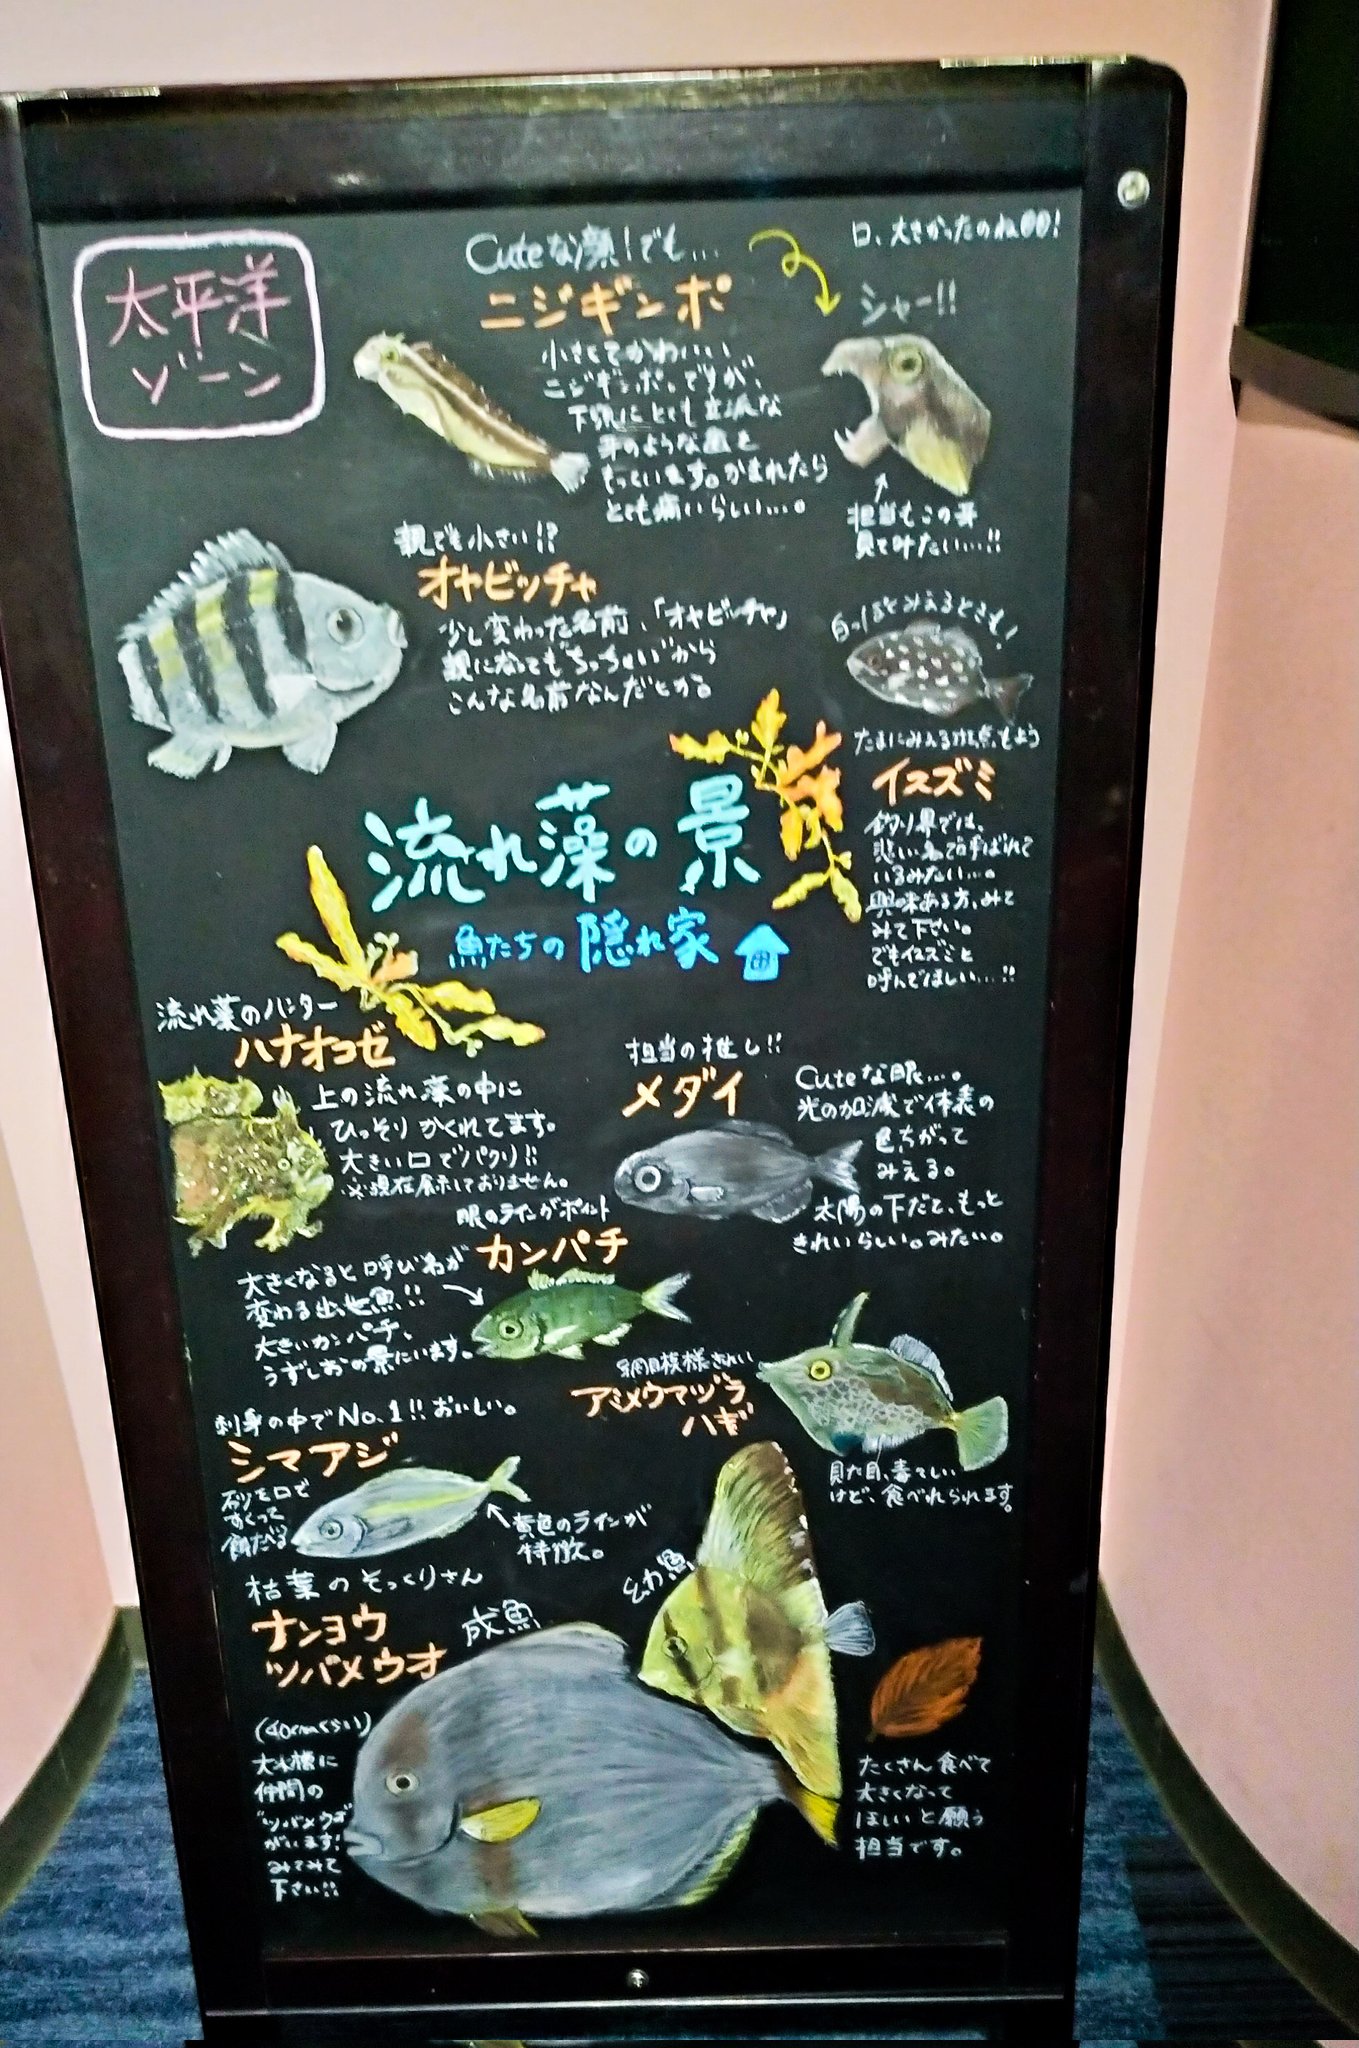 太平洋
ゾーン
Cuteな顔!でも…
ニジギンポ
小さくてかわいい
ニジギンポ。ですが、
下顎にとても立派な
牙のような歯を
もっています。かまれたら
とても痛いらしい…。
口、大きかったのね
シャー!!
担当もこの牙
見てみたい…!!
親でも小さい!?
オヤビッチャ
少し変わった名前、「オヤビッチャ」
親になっても"ちっちゃい"から
こんな名前なんだとか。
白っぽくみえるときも!
たまにみえる水玉もよう
イスズミ
釣り界では、
悲しい名で呼ばれて
いるみたい…。
興味ある方、みて
みて下さい。
でもイスズミと
呼んでほしい…!!
流れ藻の景
魚たちの隠れ家
流れ藻のハンター
ハナオコゼ
上の流れ藻の中に
ひっそりかくれてます。
大きい口でパクリ!!
※現在展示しておりません。
担当の推し!!
メダイ
Cuteな眼…。
光の加減で体表の
色ちがって
みえる。
太陽の下だと、もっと
きれいらしい。みたい。
眼のラインがポイント
カンパチ
大きくなると呼び名が
変わる出世魚!!
大きいカンパチ、
うずしおの景にいます。
網目模様きれい
アミメウマヅラ
ハギ
見た目、毒々しい
けど、食べれられます。
刺身の中でNo.1!!おいしい。
シマアジ
砂を口で
すくって
餌たべる
黄色のラインが
特徴。
枯葉のそっくりさん
ナンヨウ
ツバメウオ
成魚
幼魚
(40cmくらい)
大水槽に
仲間の
"ツバメウオ"
がいます!
みてみて
下さい!!
たくさん食べて
大きくなって
ほしいと願う
担当です。